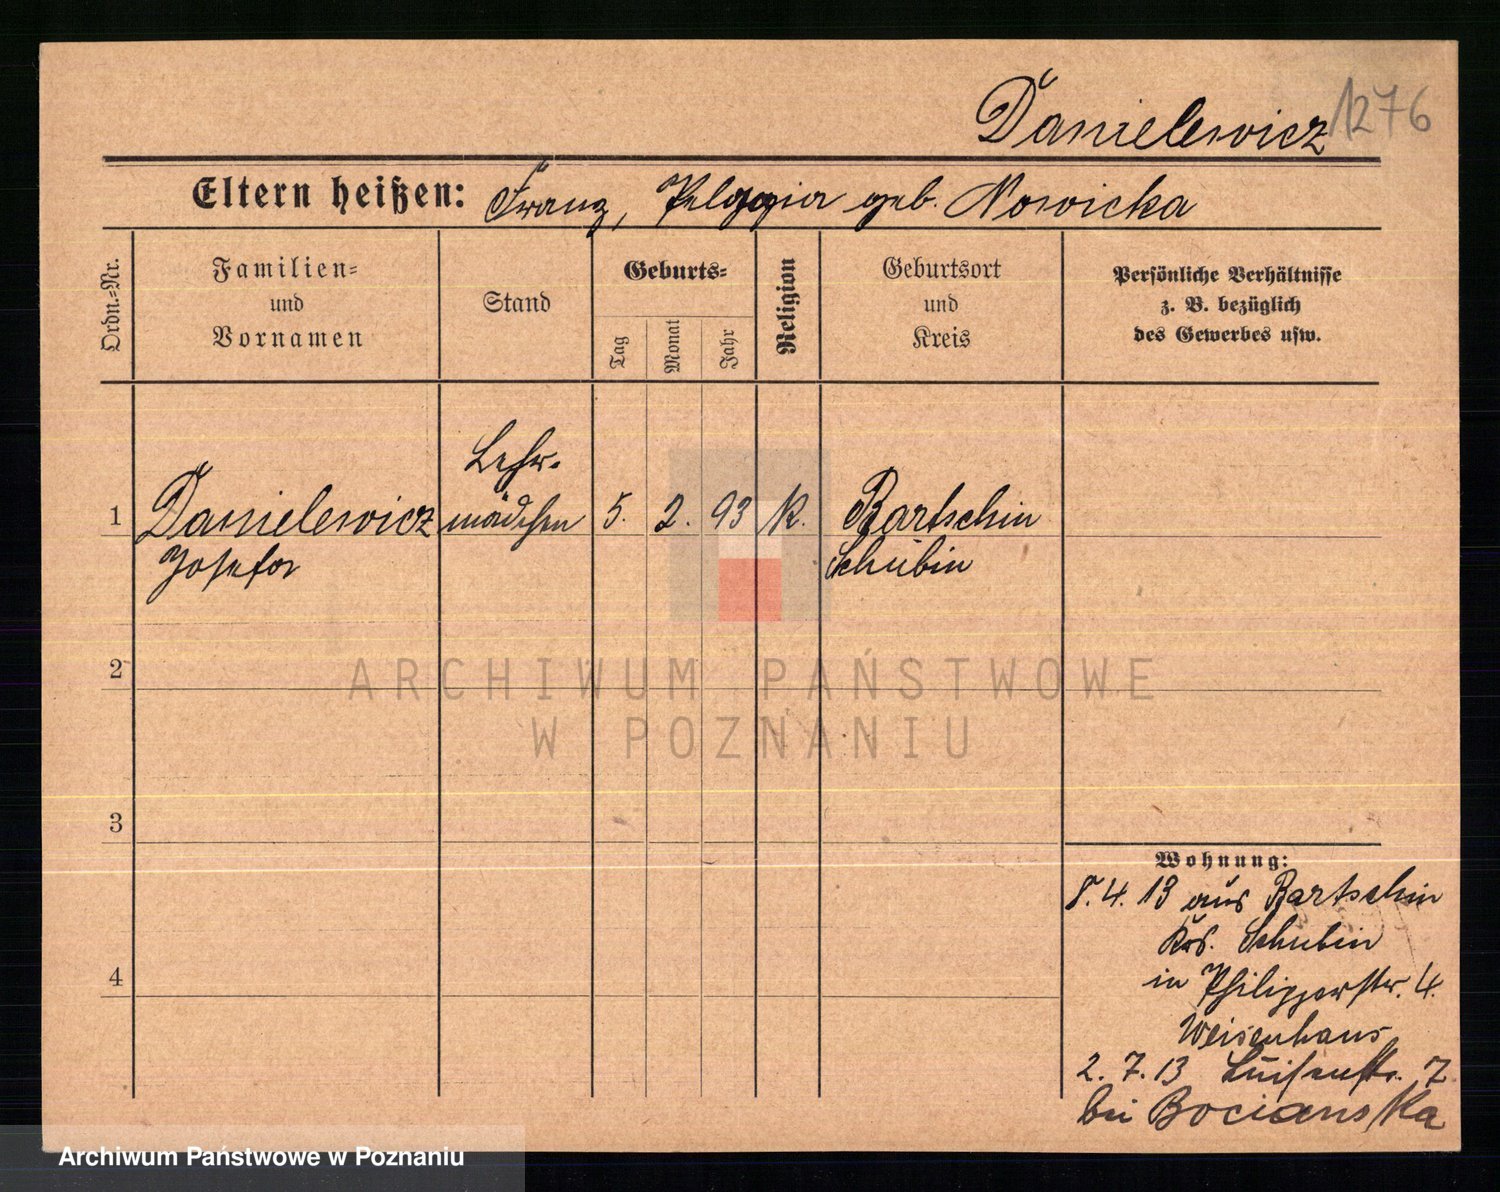 Danielewicz 1276
Eltern heißen: Franz, Pelagia geb. Nowicka
Ordn.=Nr.
Familien=
und
Vornamen
Stand
Geburts=
Tag
Monat
Jahr
Religion
Geburtsort
und
Kreis
Persönliche Verhältnisse
z. B. bezüglich
des Gewerbes usw.
Lehr-
1 Danielewicz mädchen 5. 2. 93 K. Bartschin
Josefa Schubin
2
ARCHIWUM PAŃSTWOWE
W POZNANIU
3
Wohnung:
8. 4. 13 aus Bartschin
Krs. Schubin
4
in Philipperstr. 4.
Weisenhaus
2. 7. 13 Luisenstr. 7
bei Bocianska
Archiwum Państwowe w Poznaniu